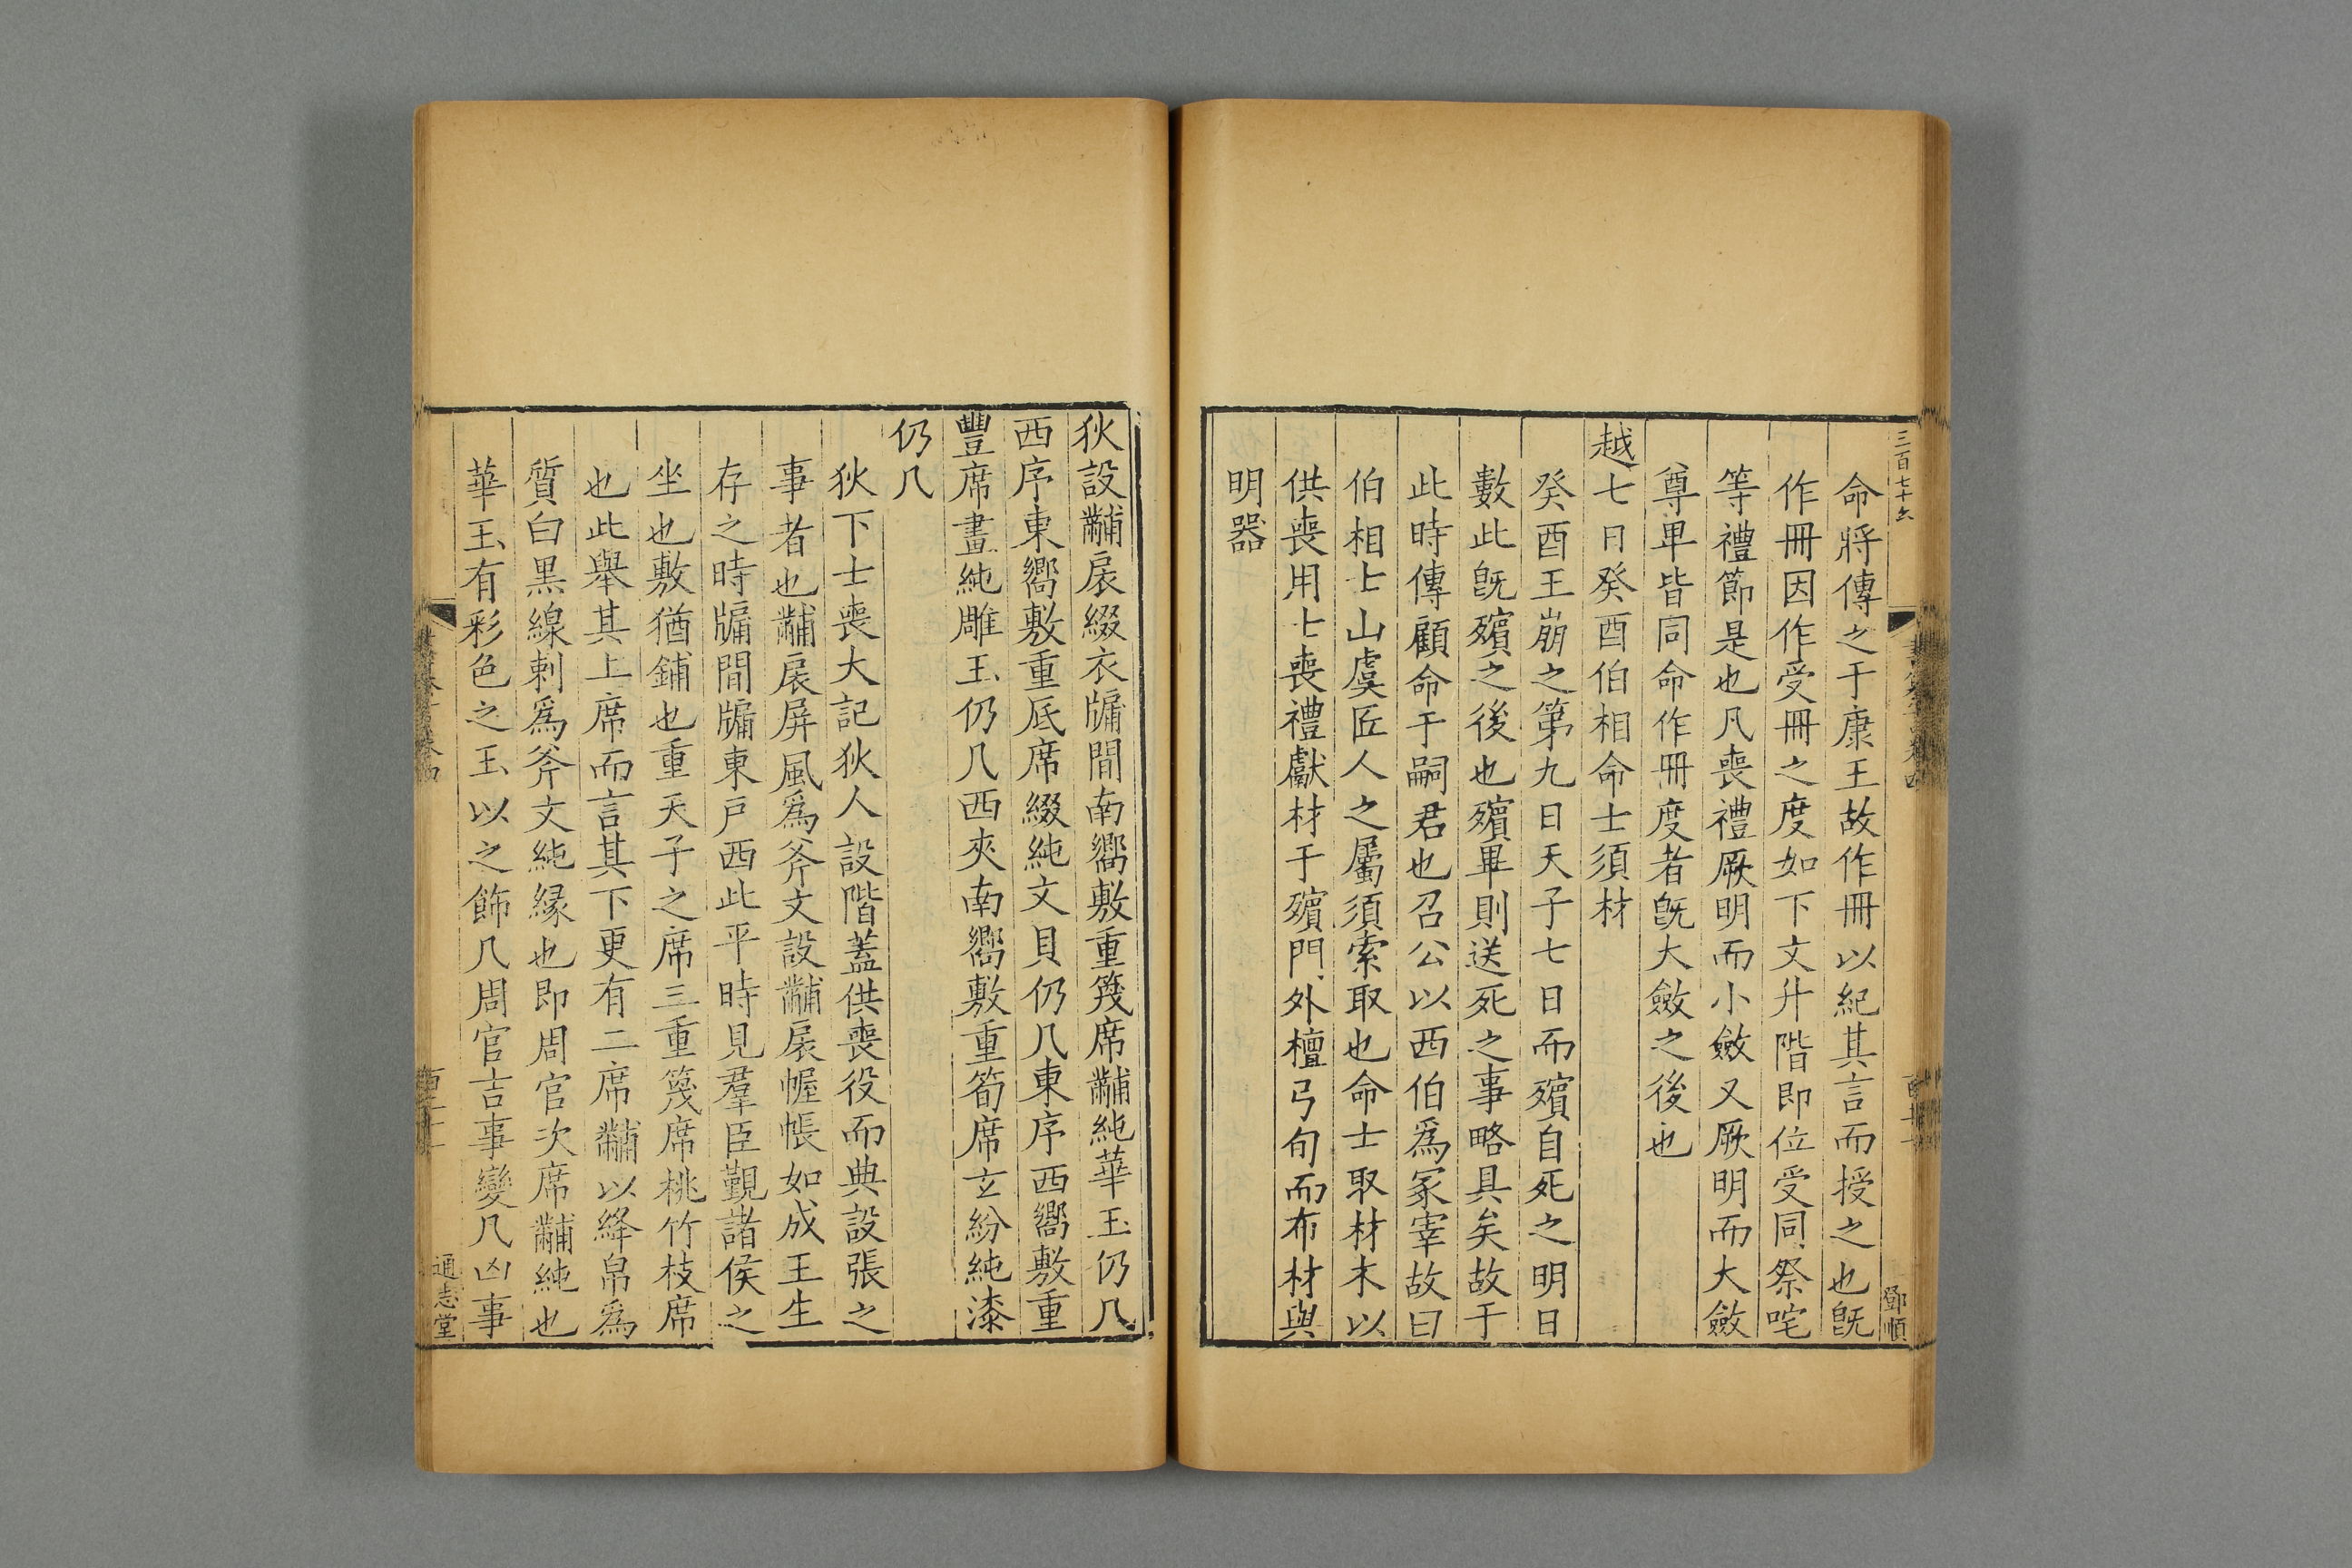 三百七十六
鄧順
命將傳之于康王故作冊以紀其言而授之也旣
作冊因作受冊之度如下文升階即位受同祭咤
等禮節是也凡喪禮厥明而小斂又厥明而大斂
尊卑皆同命作冊度者旣大斂之後也
越七日癸酉伯相命士須材
癸酉王崩之第九日天子七日而殯自死之明日
數此旣殯之後也殯畢則送死之事略具矣故于
此時傳顧命于嗣君也召公以西伯爲冢宰故曰
伯相七山虞匠人之屬須索取也命士取材木以
供喪用士喪禮獻材于殯門外檀弓旬而布材與
明器
狄設黼扆綴衣牖間南嚮敷重篾席黼純華玉仍几
西序東嚮敷重底席綴純文貝仍几東序西嚮敷重
豐席畫純雕玉仍几西夾南嚮敷重筍席玄紛純漆
仍几
狄下士喪大記狄人設階蓋供喪役而典設張之
事者也黼扆屏風爲斧文設黼扆幄帳如成王生
存之時牖間牖東戶西此平時見羣臣覲諸侯之
坐也敷猶鋪也重天子之席三重篾席桃竹枝席
也此舉其上席而言其下更有二席黼以絳帛爲
質白黑線刺爲斧文純緣也即周官次席黼純也
華玉有彩色之玉以之飾几周官吉事變几凶事
通志堂